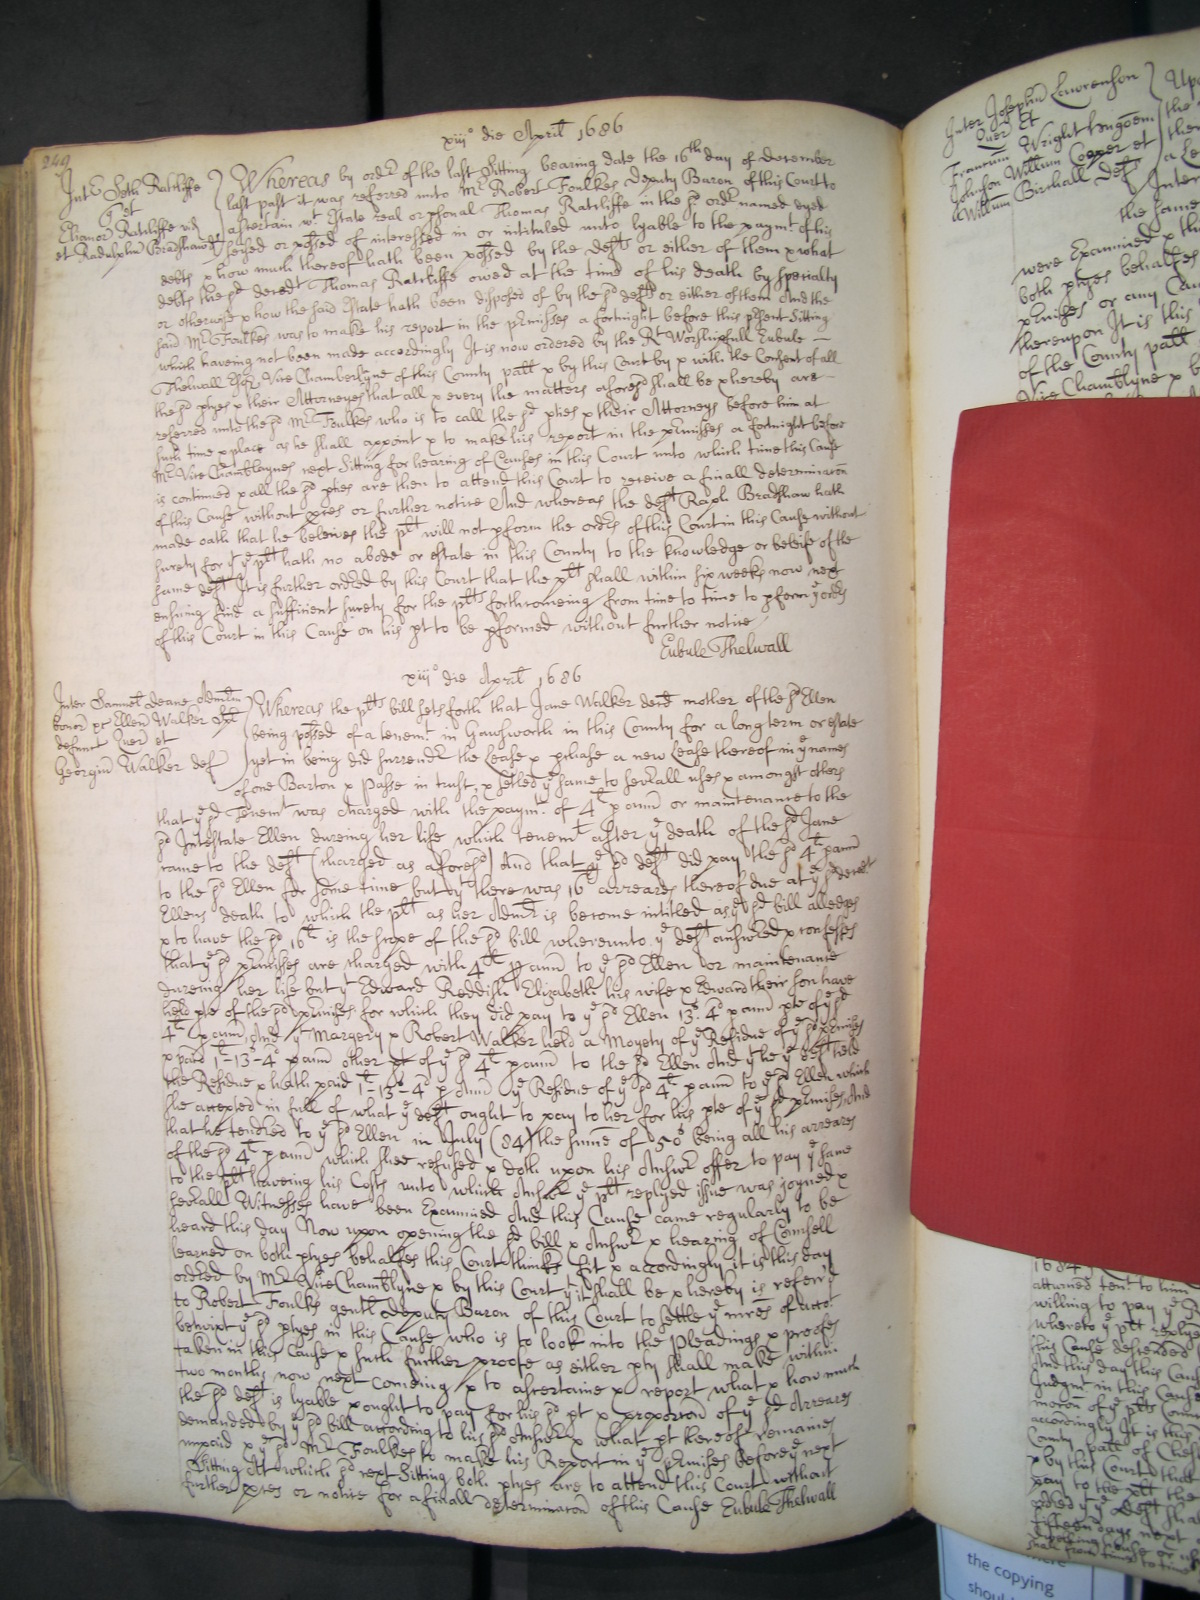 249
xiii° die Aprill 1686
Int Seth Ratcliffe
Q et
Elianor Ratcliffe vid
et Radulphu Bradshaw def
Whereas by ordr of the last Sitting bearing date the 16th day of December
last past it was referred unto Mr Robert Foulkes Deputy Baron of this Court to
Ascertain wt Estate real or psonal Thomas Ratcliffe in the sd ordr named dyed
seised or possed of interessed in or intituled unto lyable to the paymt of his
debts & how much thereof hath been possed by the defts or either of them & what
debts the sd decedt Thomas Ratcliffe owed at the time of his death by specialty
or otherwise & how the said Estate hath been disposed of by the sd defts or either of them And the
said Mr Foulkes was to make his report in the pmisses a fortnight before this psent Sitting
which haveing not been made accordingly It is now ordered by the Rt Worshipfull Eubule
Thelwall Esqr Vice Chamberlyne of this County palt & by this Court by & with the Consent of all
the sd ptyes & their Attorneyes that all & every the matters aforesd shall be & hereby are
referred unto the sd Mr Foulkes who is to call the sd ptyes & their Attorneys before him at
such time & place as he shall appoint & to make his report in the pmisses a fortnight before
Mr Vice Chamblaynes next Sitting for hearing of Causes in this Court unto which time this Cause
is continued & all the sd ptyes are then to attend this Court to receive a finall determinacon
of this Cause without pces or further notice And whereas the deft Raph Bradshaw hath
made oath that he beleives the plt will not pform the ordrs of this Court in this Cause without
surety for yt ye plt hath no abode or estate in this County to the knowledge or beleife of the
same deft It is further ordred by this Court that the plt shall within six weeks now next
ensuing find a sufficient surety for the plts forthcomeing from time to time to pform ye ordrs
of this Court in this Cause on his pt to be pformed without further notice
Eubule Thelwall
xiii° die Aprill 1686
Inter Samuel Deane Admstr
bonor &c Ellen Walker
defunct Quer et
Georgiu Walker def
Whereas the plts bill sets forth that Jane Walker decd mother of the sd Ellen
being possed of a tenemt in Gawsworth in this County for a long term or estate
yet in being did surrendr the Lease & pchase a new Lease thereof in ye names
of one Barton & Passe in trust, & setled ye same to severall uses & amongst others
that ye sd Tenemt was charged with the paymt of 4l p annu or maintenance to the
sd Intestate Ellen dureing her life which tenemt after ye death of the sd Jane
came to the deft (charged as aforesd) And that ye sd deft did pay the sd 4l p annu
to the sd Ellen for some time but yt there was 16l arreares thereof due at ye sd decedt
Ellens death to which the plt as her Admr is become intitled as ye sd bill alledges
& to have the sd 16l is the scope of the sd bill whereunto ye deft answred & confesses
that ye sd pmisses are charged with 4l p annu to ye sd Ellen or maintenance
dureing her life but yt Edward Reddish Elizabeth his wife & Edward their son have
held pte of the sd pmisses for which they did pay to ye sd Ellen 13s 4d p annu pte of ye sd
4l p annu, And yt Margery & Robert Walker held a Moyety of ye Residue of ye sd pmisses
& paid 1l-13s-4d p annu other pt of ye sd 4l p annu to the sd Ellen And yt he ye deft held
the Residue & hath paid 1l-13s-4d p Annu ye Residue of ye sd 4l p annu to ye sd Ellen which
she accepted in full of what ye deft ought to pay to her for his pte of ye sd pmisses, And
that he tendred to ye sd Ellen in July (84) the sume of 50s being all his arreares
of the sd 4l p annu which shee refused & doth upon his Answr offer to pay ye same
to the plt haveing his Costs unto which Answr ye plt replyed issue was joyned &
severall Witnesses have been Examined And this Cause came regularly to be
heard this day Now upon opening the sd bill & Answr & hearing of Counsell
learned on both ptyes behalfes this Court thinks fit & accordingly it is this day
ordred by Mr Vice Chamblyne & by this Court yt it shall be & hereby is referrd
to Robert Foulks gentl Deputy Baron of this Court to settle ye mres of acct
betwixt ye sd ptyes in this Cause who is to look into the Pleadings & proofes
taken in this Cause & such further proofe as either pty shall make within
two months now next comeing & to ascertaine & report what & how much
the sd deft is lyable & ought to pay for his sd pt & proporcon of ye sd Arreares
demanded by ye sd bill according to his sd Answr & what pt thereof remaines
unpaid & ye sd Mr Foulkes to make his Report in ye pmisses before ye next
Sitting At which sd next Sitting both ptyes are to attend this Court without
further pces or notice for a finall determinacon of this Cause Eubule Thelwall
Inter Josephu Lawrenson
Quer Et
Franciscu Wright Hugoem
Johnson Willum Cooper et
Willum Birchall Def
Upo
the
then
a Le
Inter
the same
were Examined & thi
both ptyes behalfes
pmisses or any Cau
thereupon It is this
of the County palt
Vice Chamblyne & b
1684
atturned tent to him
willing to pay ye
whereto ye plt replye
this Cause descended
And this day this Cau
Judgmt in this Cause
mocon of ye plts Coun
accordingly It is this
County palt of Ches
& by this Court that
pay to the plt the
ordred yt ye Deft sha
fifteen days next
the copying
shoul